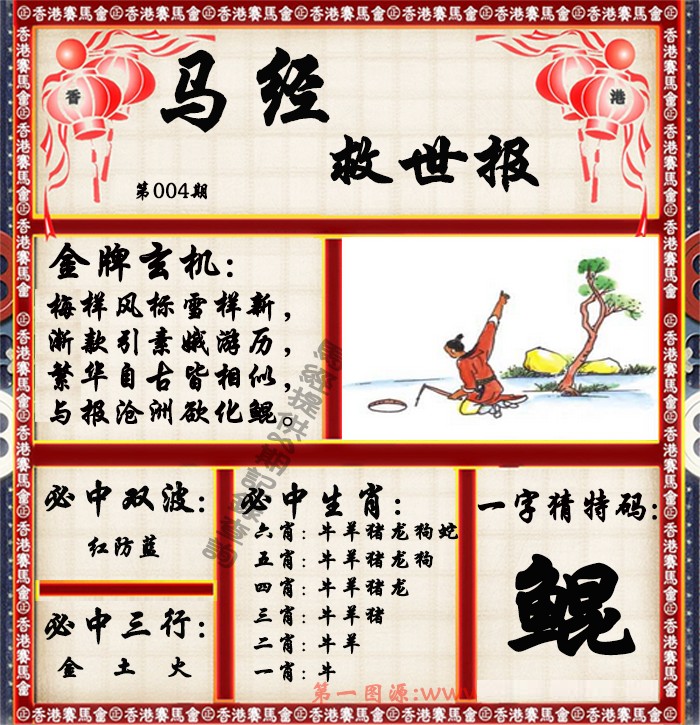 香港賽馬會
香
港
马经
救世报
第004期
金牌玄机:
梅样风标雪样新,
渐款引素娥游历,
繁华自古皆相似,
与报沧洲欲化鲲。
必中双波:
红防蓝
必中三行:
金 土 火
必中生肖:
六肖:牛羊猪龙狗蛇
五肖:牛羊猪龙狗
四肖:牛羊猪龙
三肖:牛羊猪
二肖:牛羊
一肖:牛
一字猜特码:
鲲
第一图源:www